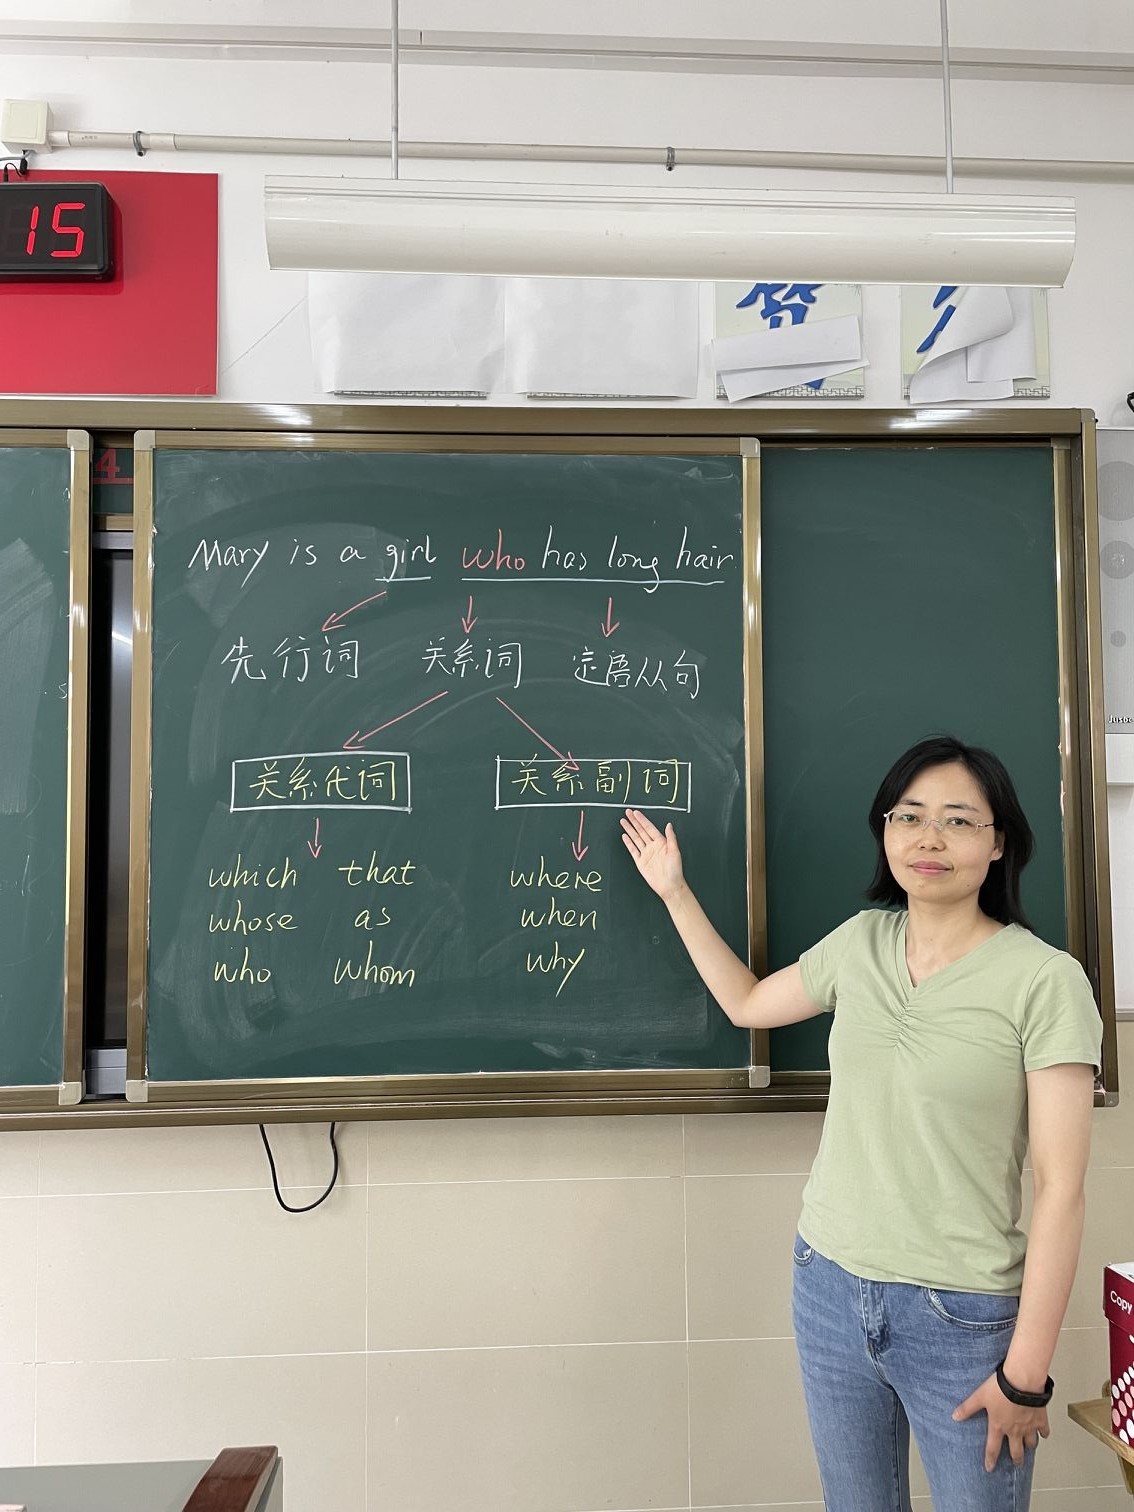 15
4
Mary is a girl who has long hair.
先行词 关系词 定语从句
关系代词 关系副词
which that where
whose as when
who whom why
Copy